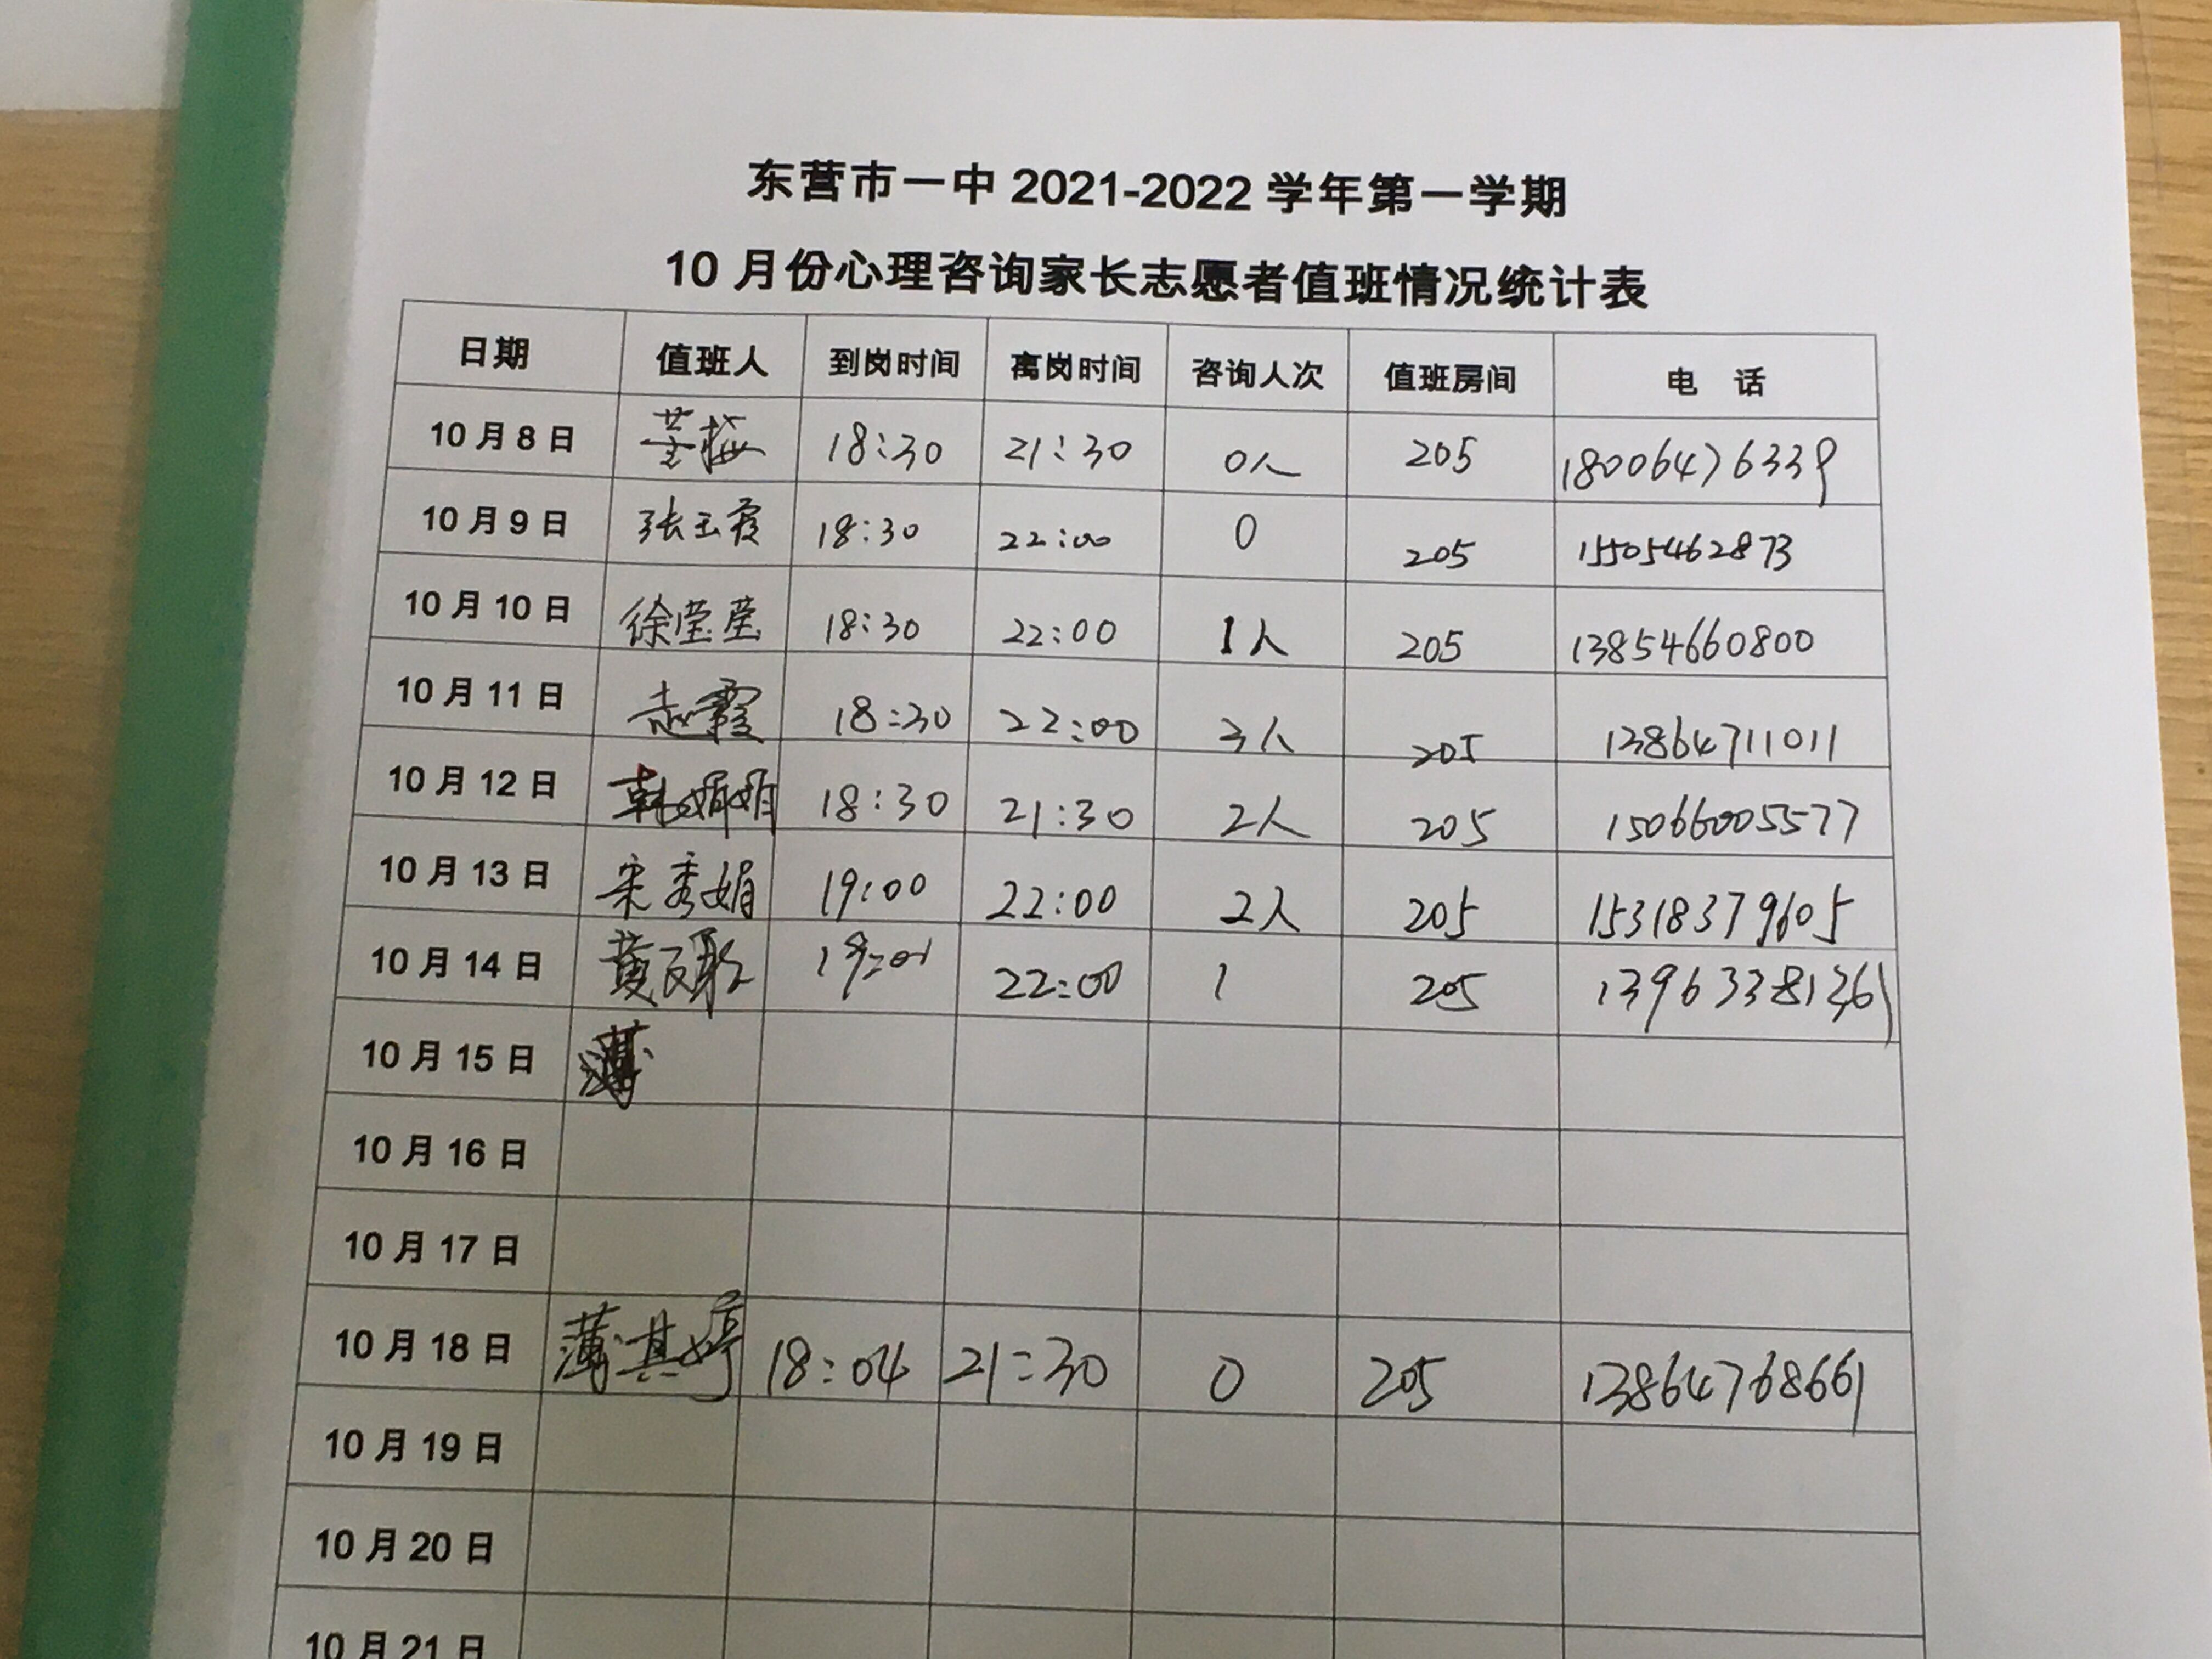 东营市一中 2021-2022 学年第一学期
10 月份心理咨询家长志愿者值班情况统计表
日期 值班人 到岗时间 离岗时间 咨询人次 值班房间 电 话
10 月 8 日 18:30 21:30 0人 205 18006476339
10 月 9 日 张玉霞 18:30 22:00 0 205 15505462873
10 月 10 日 徐莹莹 18:30 22:00 1人 205 13854660800
10 月 11 日 赵霞 18:30 22:00 3人 205 13864711011
10 月 12 日 韩娟娟 18:30 21:30 2人 205 15066005577
10 月 13 日 宋秀娟 19:00 22:00 2人 205 15318379605
10 月 14 日 22:00 1 205
10 月 15 日
10 月 16 日
10 月 17 日
10 月 18 日 薄其婷 18:04 21:30 0 205 13864768661
10 月 19 日
10 月 20 日
10 月 21 日